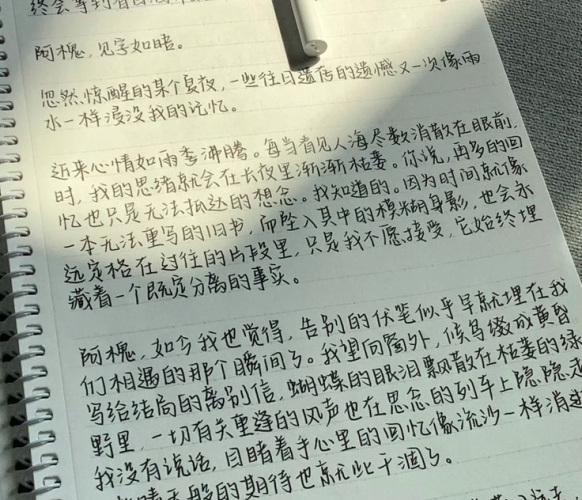 终会等到有
阿槐,见字如晤。
忽然惊醒的某个夏夜,一些往日遗存的遗憾又一次像雨
水一样浸没我的记忆。
近来心情如雨季沸腾。每当看见人海尽数消散在眼前
时,我的思绪就会在长夜里渐渐枯萎。你说,再多的回
忆也只是无法抵达的想念。我知道的。因为时间就像
一本无法重写的旧书,而坠入其中的模糊身影,也会永
远定格在过往的片段里,只是我不愿接受,它始终埋
藏着一个既定分离的事实。
阿槐,如今我也觉得,告别的伏笔似乎早就埋在我
们相遇的那个瞬间了。我望向窗外,候鸟缀成黄昏
写给结局的离别信,蝴蝶的眼泪飘散在枯萎的绿
野里,一切有关重逢的风声也在思念的列车上隐隐
我没有说话,目睹着手心里的回忆像流沙一样消逝
般的期待也就此干涸了。